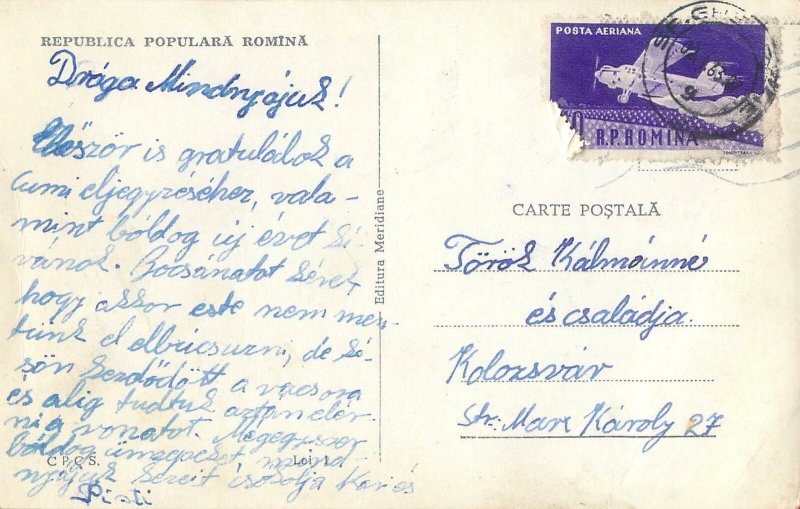 REPUBLICA POPULARĂ ROMÎNĂ
Drága Mindnyájuk!
Először is gratulálok a
Cumi eljegyzéséhez, vala-
mint bóldog új évet kí-
vánok. Bocsánatot kérek,
hogy akkor este nem men-
tünk el elbúcsuzni, de ké-
sön kezdődött a vacsora
és alig tudtuk aztán elér-
ni a vonatot. Mégegyszer
bóldog ünnepeket mind-
nyájuk kezeit csókolja Kari és
Pisti
C.P.C.S.
Loi 1.
Editura Meridiane
POSTA AERIANA
R.P. ROMINA
CARTE POȘTALĂ
Török Kálmánné
és családja.
Kolozsvár
Str. Marx Károly 27